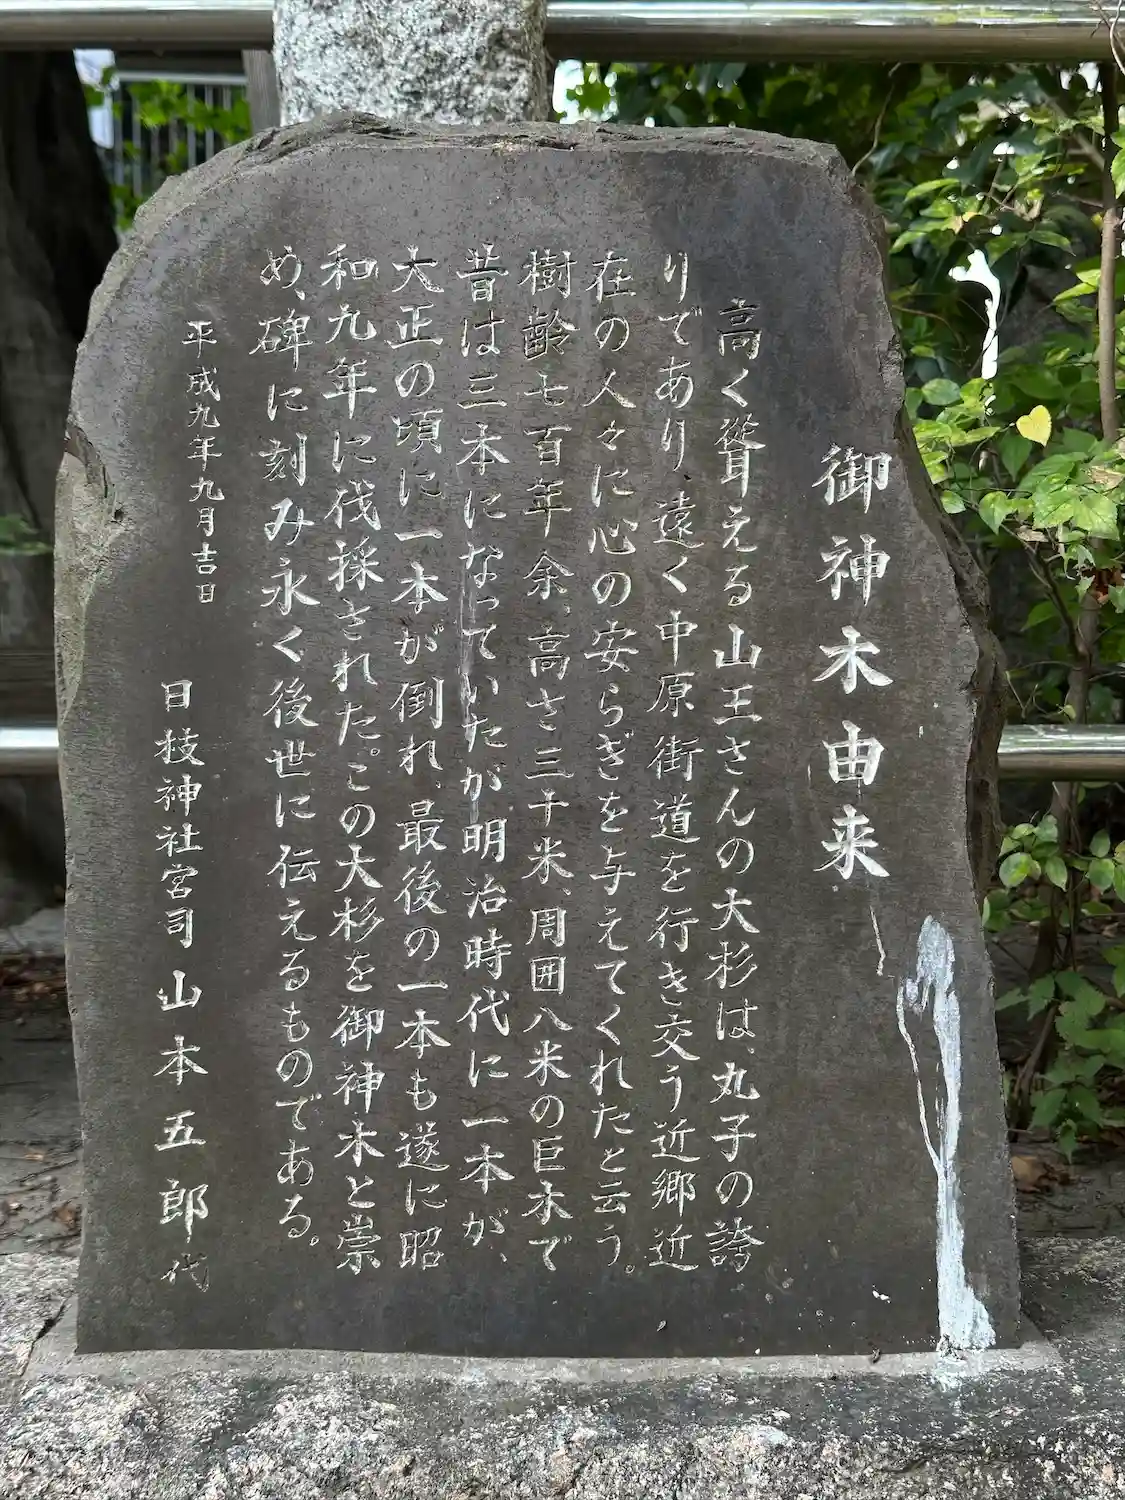 御神木由来
高く聳える山王さんの大杉は、丸子の誇
りであり、遠く中原街道を行き交う近郷近
在の人々に心の安らぎを与えてくれたと云う。
樹齢七百年余、高さ三十米、周囲八米の巨木で
昔は三本になっていたが明治時代に一本が、
大正の頃に一本が倒れ、最後の一本も遂に昭
和九年に伐採された。この大杉を御神木と崇
め、碑に刻み永く後世に伝えるものである。
平成九年九月吉日
日枝神社宮司 山本五郎代